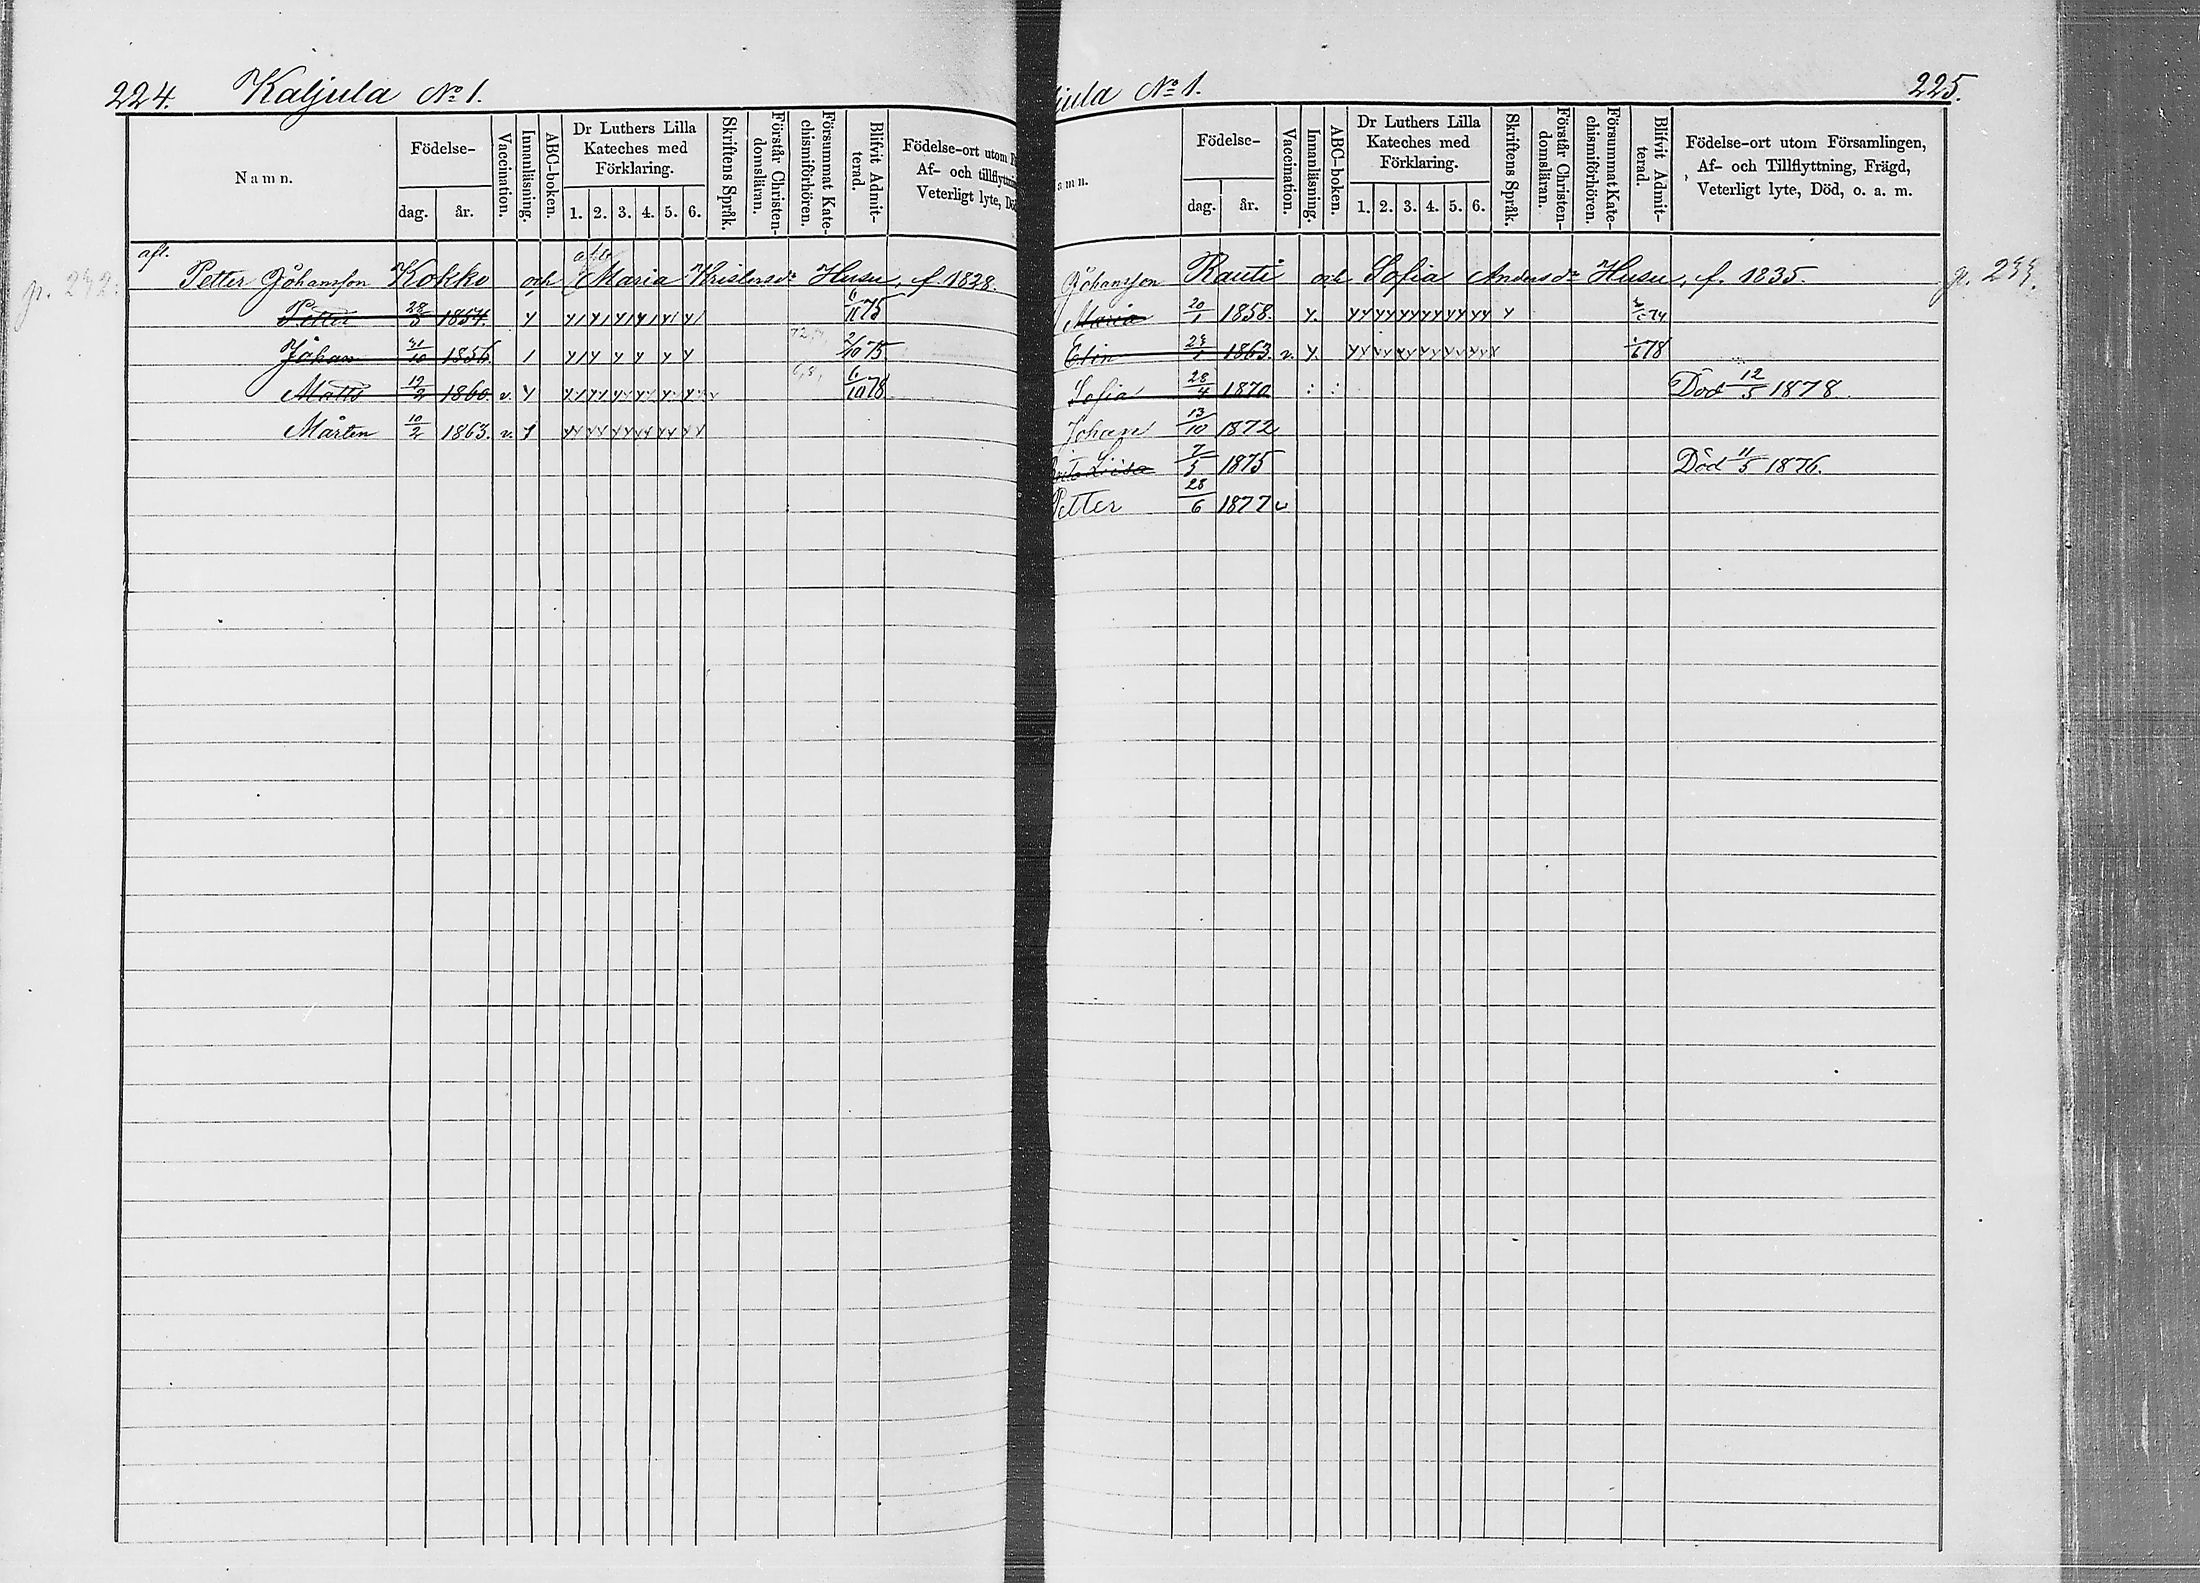 224. Kaljula No 1.
Namn.
Födelse-
dag. år.
Vaccination.
Innanläsning.
ABC-boken.
Dr Luthers Lilla
Kateches med
Förklaring.
1. 2. 3. 4. 5. 6.
Skriftens Språk.
Förstår Christen-
domsläran.
Försummat Kate-
chismiförhören.
Blifvit Admit-
terad.
Födelse-ort utom
Af- och tillflyttning
Veterligt lyte, Död
afl.
Petter Johansson Kokko och Maria Kristersdr Husu, f. 1828.
p. 242.
Petter 28/3 1854. y 6/11 75
Johan 31/10 1856. 1 2/10 75
Matts 12/2 1860. v. y 6/10 78
Mårten 10/2 1863. v. y
jula No 1. 225.
amn.
Födelse-
dag. år.
Vaccination.
Innanläsning.
ABC-boken.
Dr Luthers Lilla
Kateches med
Förklaring.
1. 2. 3. 4. 5. 6.
Skriftens Språk.
Förstår Christen-
domsläran.
Försummat Kate-
chismiförhören.
Blifvit Admit-
terad.
Födelse-ort utom Församlingen,
Af- och Tillflyttning, Frägd,
Veterligt lyte, Död, o. a. m.
Johansson Rauti och Sofia Andersdr Husu, f. 1835.
Maria 20/1 1858. y.
Elin 1863. v. y.
Sofia 28/4 1870 Död 12/5 1878.
Johan 13/10 1872
Liisa 7/3 1875 Död 11/5 1876.
Petter 28/6 1877 v